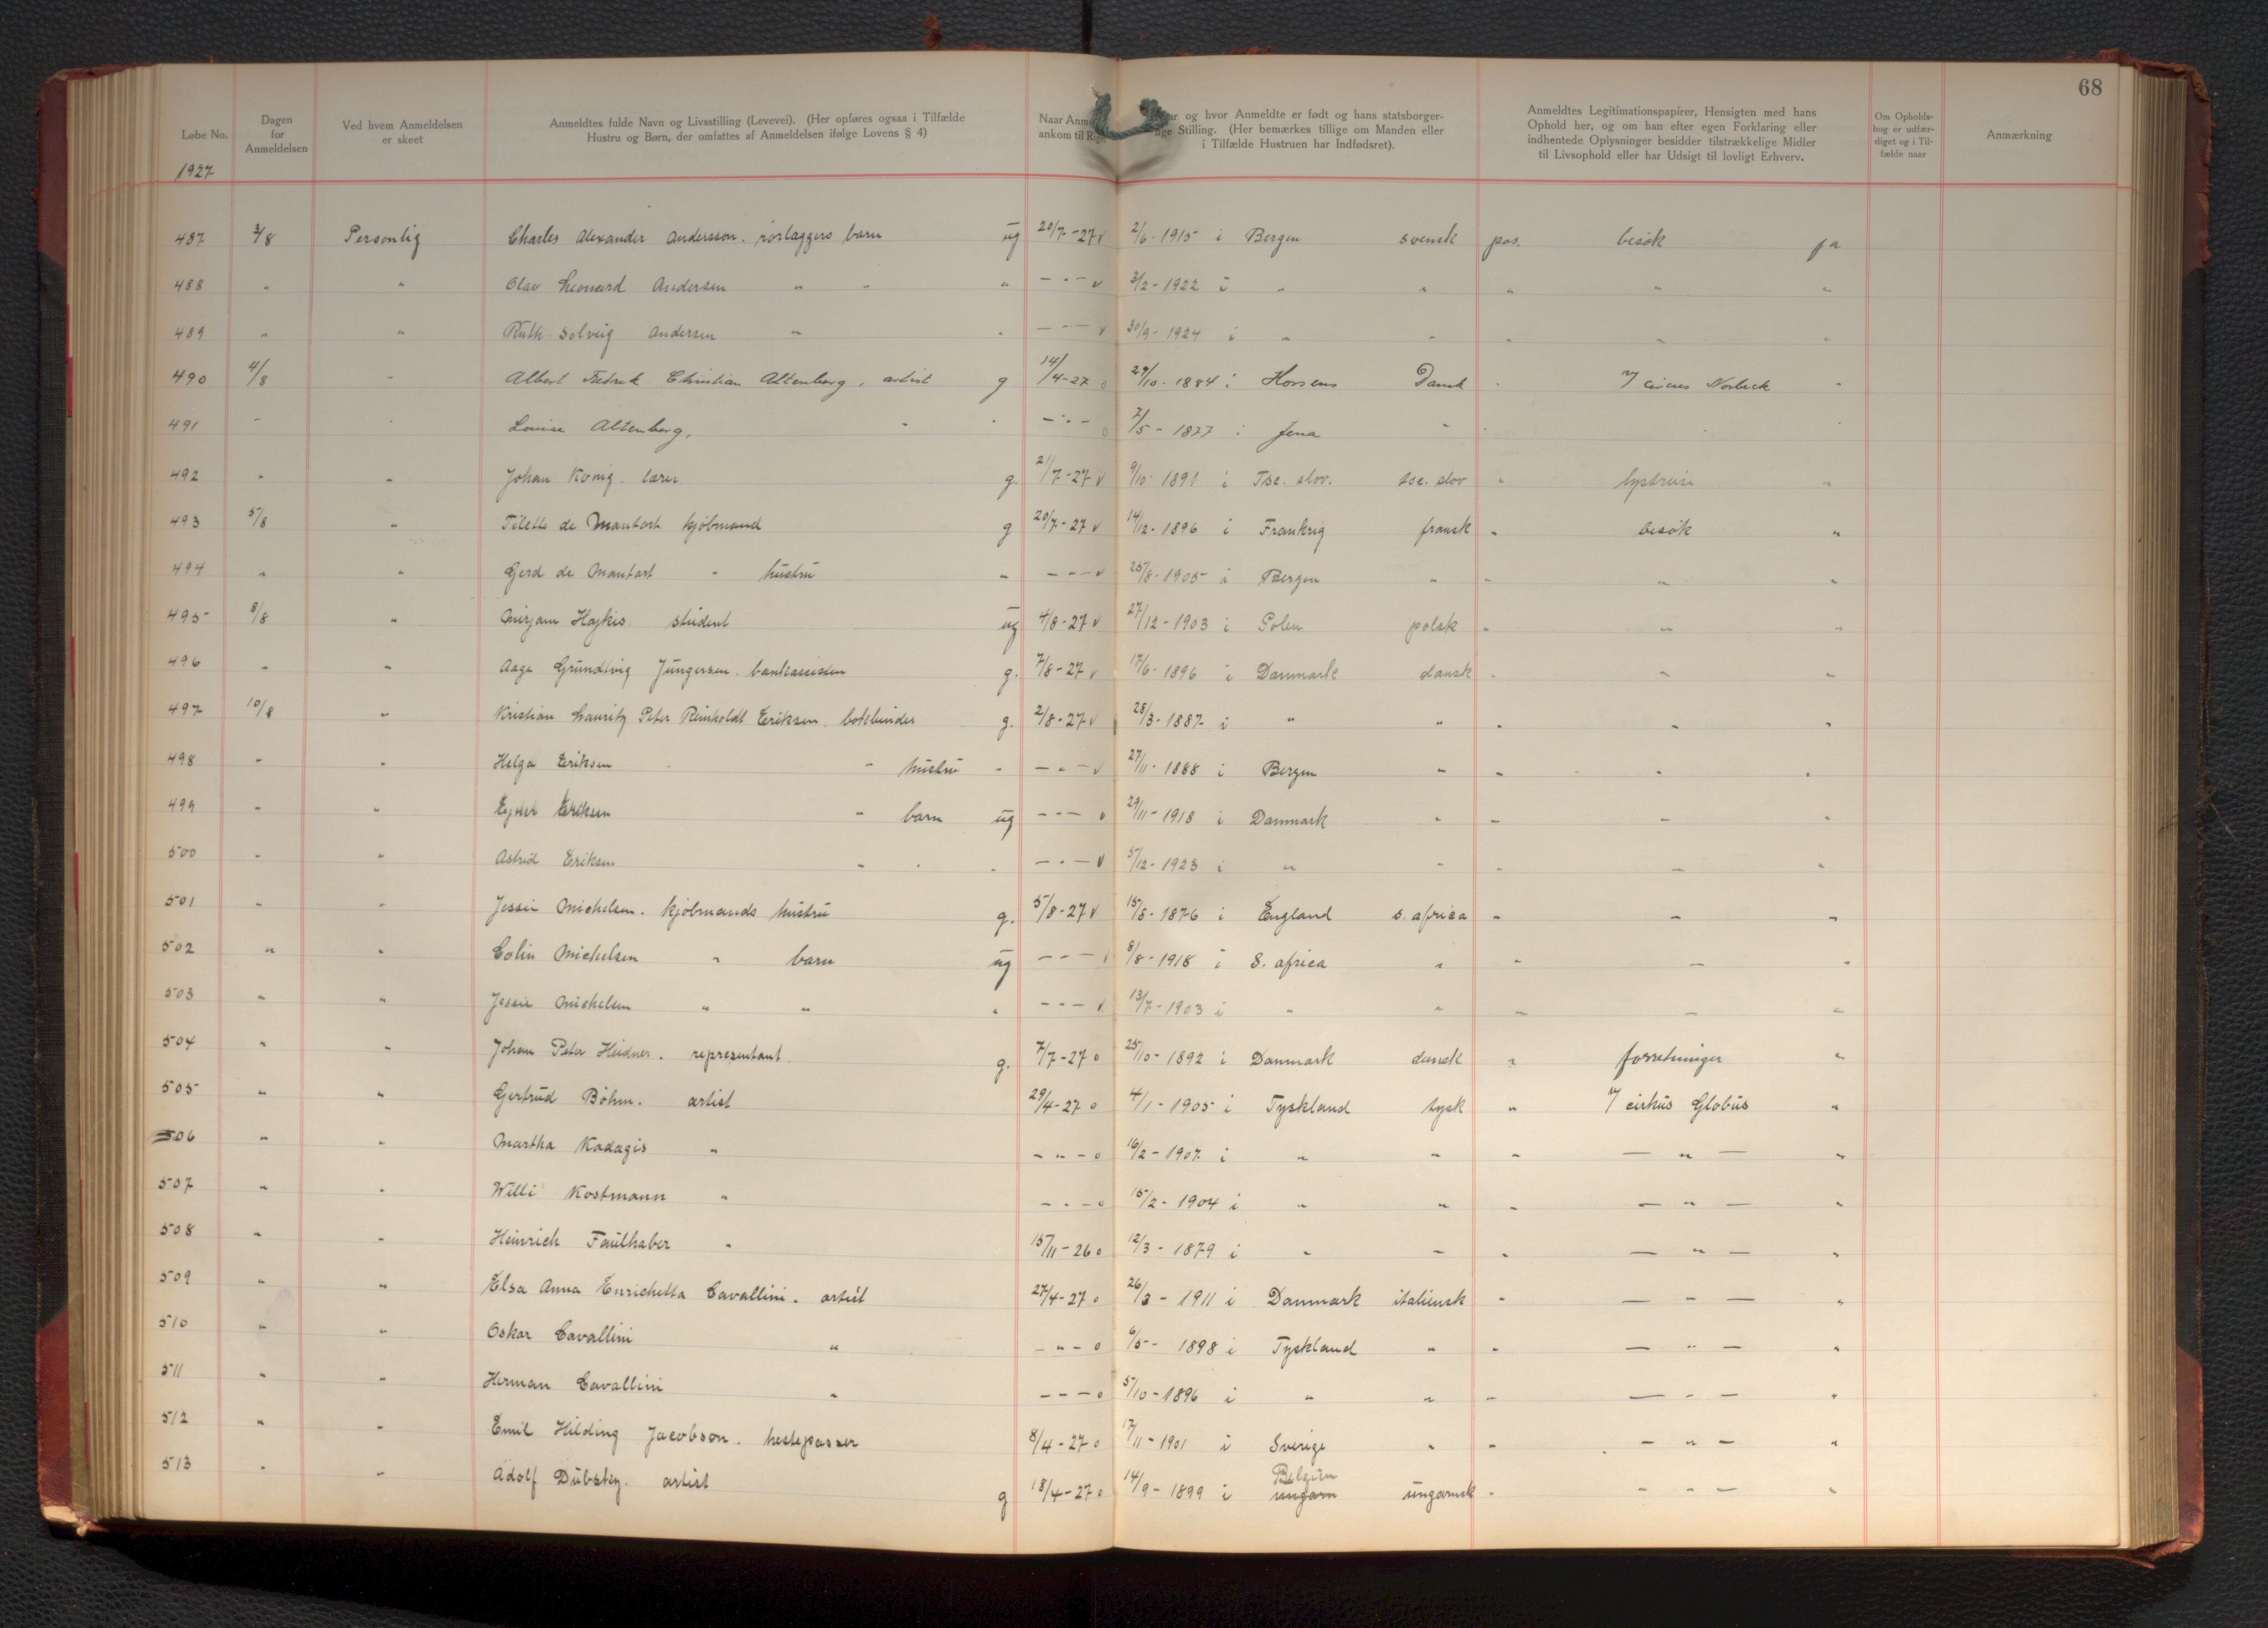 68
Løbe No. Dagen for Anmeldelsen Ved hvem Anmeldelsen er skeet Anmeldtes fulde Navn og Livsstilling (Levevei). (Her opføres ogsaa i Tilfælde Hustru og Børn, der omfattes af Anmeldelsen ifølge Lovens § 4) Naar ankom til og hvor Anmeldte er født og hans statsborgerlige Stilling. (Her bemærkes tillige om Manden eller i Tilfælde Hustruen har Indfødsret). Anmeldtes Legitimationspapirer, Hensigten med hans Ophold her, og om han efter egen Forklaring eller indhentede Oplysninger besidder tilstrækkelige Midler til Livsophold eller har Udsigt til lovligt Erhverv. Om Opholdsbog er udfærdiget og i Tilfælde naar Anmærkning
1927
487 3/8 Personlig Charles Alexander Andersson. rørlæggers barn ug 20/7-27 v 2/6-1915 i Bergen svensk pas. besøk ja
488 " " Olav Leonard Andersen " " " - " - v 3/2-1922 i " " " " "
489 " " Ruth Solveig Andersen " " - " - v 30/9-1924 i " " " " "
490 4/8 " Albert Fredrik Christian Altenborg, artist g 14/4-27 o 29/10-1884 i Horsens Dansk " v/ circus Norbeck "
491 " " Louise Altenborg, " " - " - o 7/5-1877 i Jena " " " "
492 " " Johan König. lærer g. 21/7-27 v 9/10-1891 i Tse. slov. tse. slov " lystreise "
493 5/8 " de Mautort kjøbmand g 20/7-27 v 14/12-1896 i Frankrig fransk " besøk "
494 " " Gerd de Mautort " hustru " - " - v 25/8-1905 i Bergen " " " "
495 8/8 " Mirjam Hajkis student ug 4/8-27 v 27/12-1903 i Polen polsk " " "
496 " " Aage Grundtvig Jungersen. g. 7/8-27 v 17/6-1896 i Danmark dansk " " "
497 10/8 " Kristian Lauritz Peter Reinholdt Eriksen. bokbinder g. 2/8-27 v 28/3-1887 i " " " " "
498 " " Helga Eriksen " hustru " - " - v 27/11-1888 i Bergen " " " "
499 " " Eriksen " barn ug - " - v 29/11-1918 i Danmark " " " "
500 " " Astrid Eriksen " " " - " - v 5/12-1923 i " " " " "
501 " " Jessie Michelsen. kjøbmands hustru g. 5/8-27 v 15/8-1876 i England s. africa " " "
502 " " Colin Michelsen " barn ug - " - v 8/8-1918 i S. africa " " " "
503 " " Jessie Michelsen " " " - " - v 13/7-1903 i " " " " "
504 " " Johan Peter Heidner. representant. g. 7/7-27 o 25/10-1892 i Danmark dansk " forretninger "
505 " " Gertrud Böhm. artist 29/4-27 o 4/1-1905 i Tyskland tysk " v/ cirkus Globus "
506 " " Martha Kadagis " - " - o 16/2-1907 i " " " - " - "
507 " " Willi Kostmann " - " - o 15/2-1904 i " " " - " - "
508 " " Heinrich Faulhaber " 15/11-26 o 12/3-1879 i " " " - " - "
509 " " Elsa Anna Enrichetta Cavallini. artist 27/4-27 o 26/3-1911 i Danmark italiensk " - " - "
510 " " Oskar Cavallini " - " - o 6/5-1898 i Tyskland " " - " - "
511 " " Herman Cavallini " - " - o 5/10-1896 i " " " - " - "
512 " " Emil Hilding Jacobson. hestepasser 8/4-27 o 17/11-1901 i Sverige " " - " - "
513 " " Adolf Dubsky. artist g 18/4-27 o 14/9-1899 i ungarn Belgien ungarnsk " - " - "